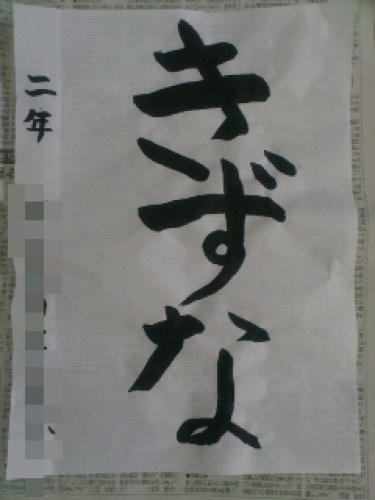 きずな
二年